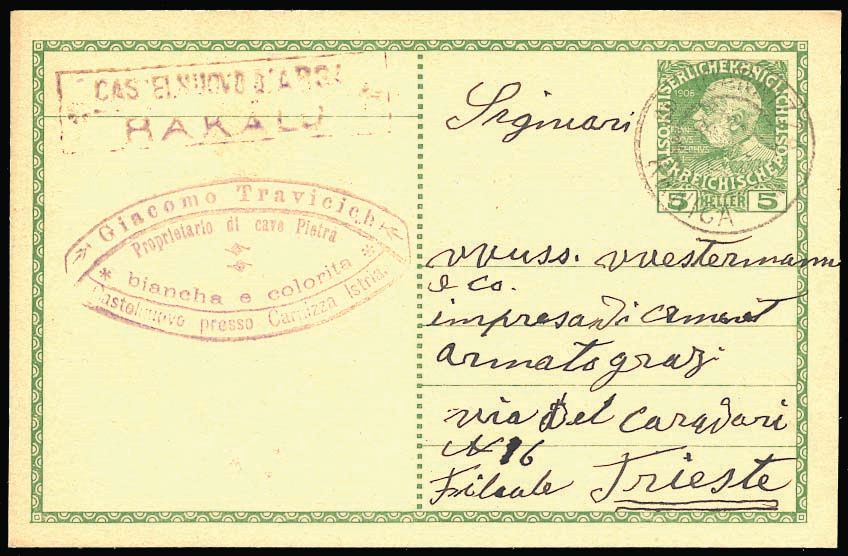 CASTELNUOVO D'ARSA
RAKALJ
Giacomo Travicich
Proprietario di cave Pietra
biancha e colorita
Castelnuovo presso Carnizza Istria.
KAISERLICHEKÖNIGLICHE
ÖSTERREICHISCHEPOST
1908
5 HELLER 5
Signiari
vvuss. vvestermann
e co.
impresa di cament
armato graz
via Del Caradari
N 16
Filcale Trieste